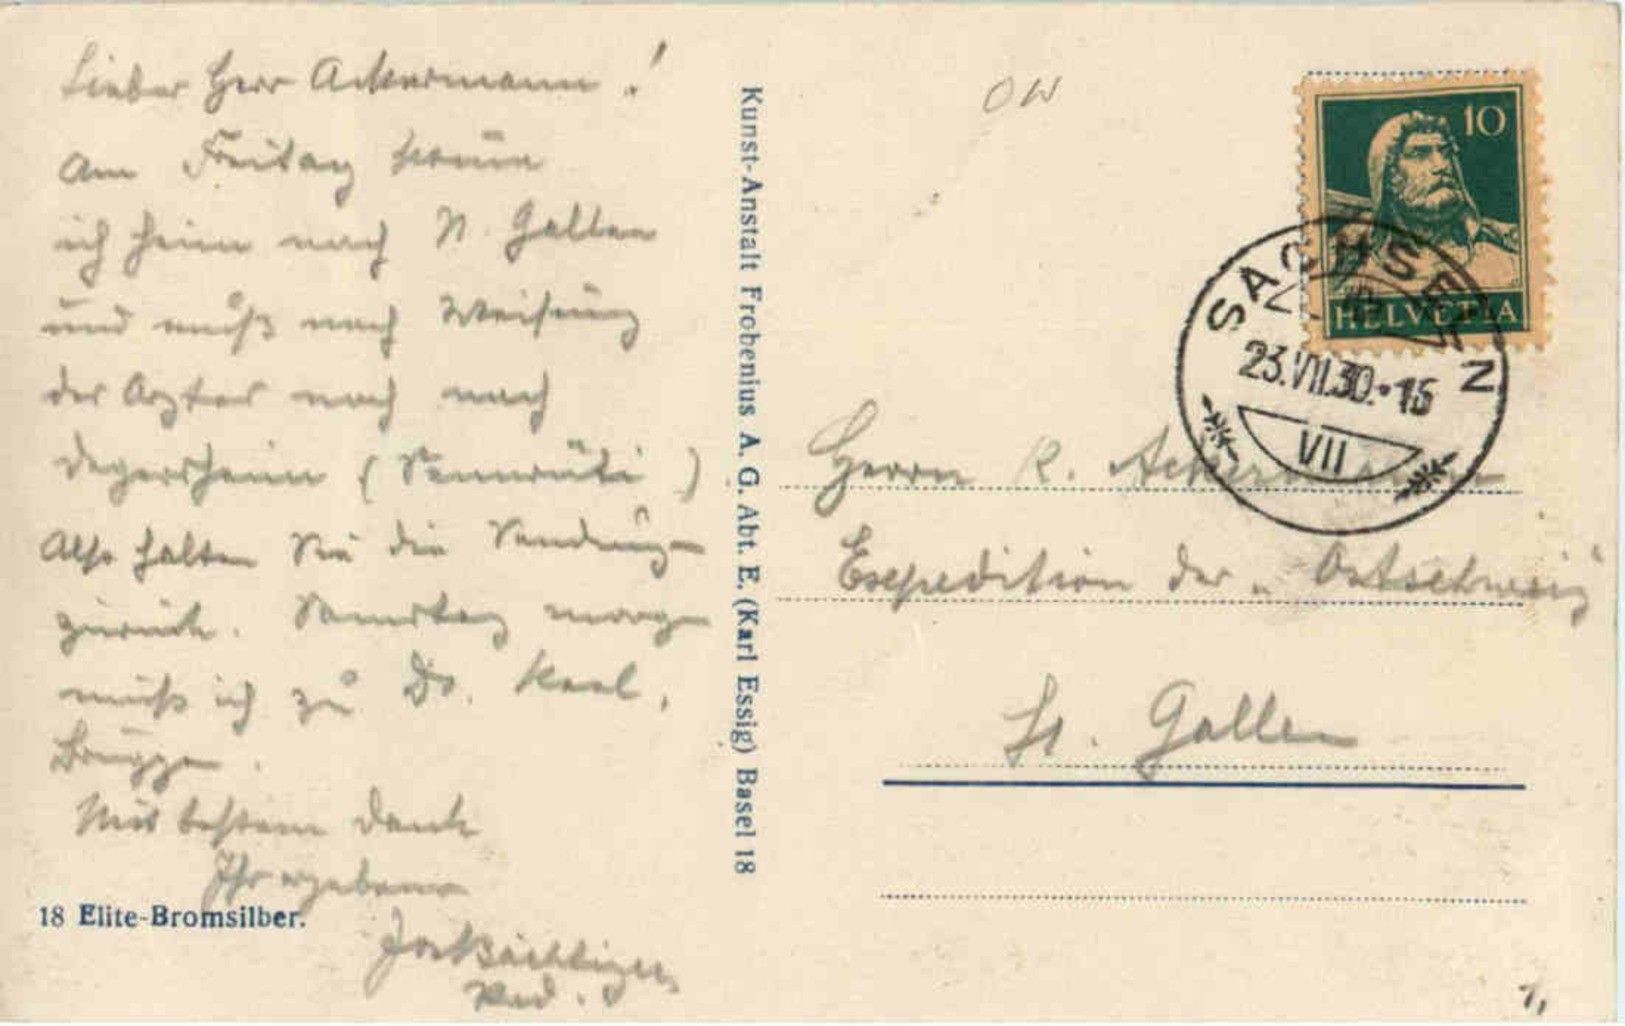 Lieber Herr Ackermann!
Am Freitag komme
ich heim nach St. Gallen
und muß nach Weisung
des Arztes noch nach
Degersheim (Sennrüti)
Also halten Sie die Sendung
zurück. Samstag morgen
muß ich zu Dr. Keel,
Bruggen.
Mit bestem Dank
Ihr ergebener
Jos. Bächtiger
Red.
18 Elite-Bromsilber.
Kunst-Anstalt Frobenius A. G. Abt. E. (Karl Essig) Basel 18
OW
10
HELVETIA
SACHSELN
23.VII.30.•15
VII
Herrn R. Ackermann
Expedition der „Ostschweiz"
St. Gallen